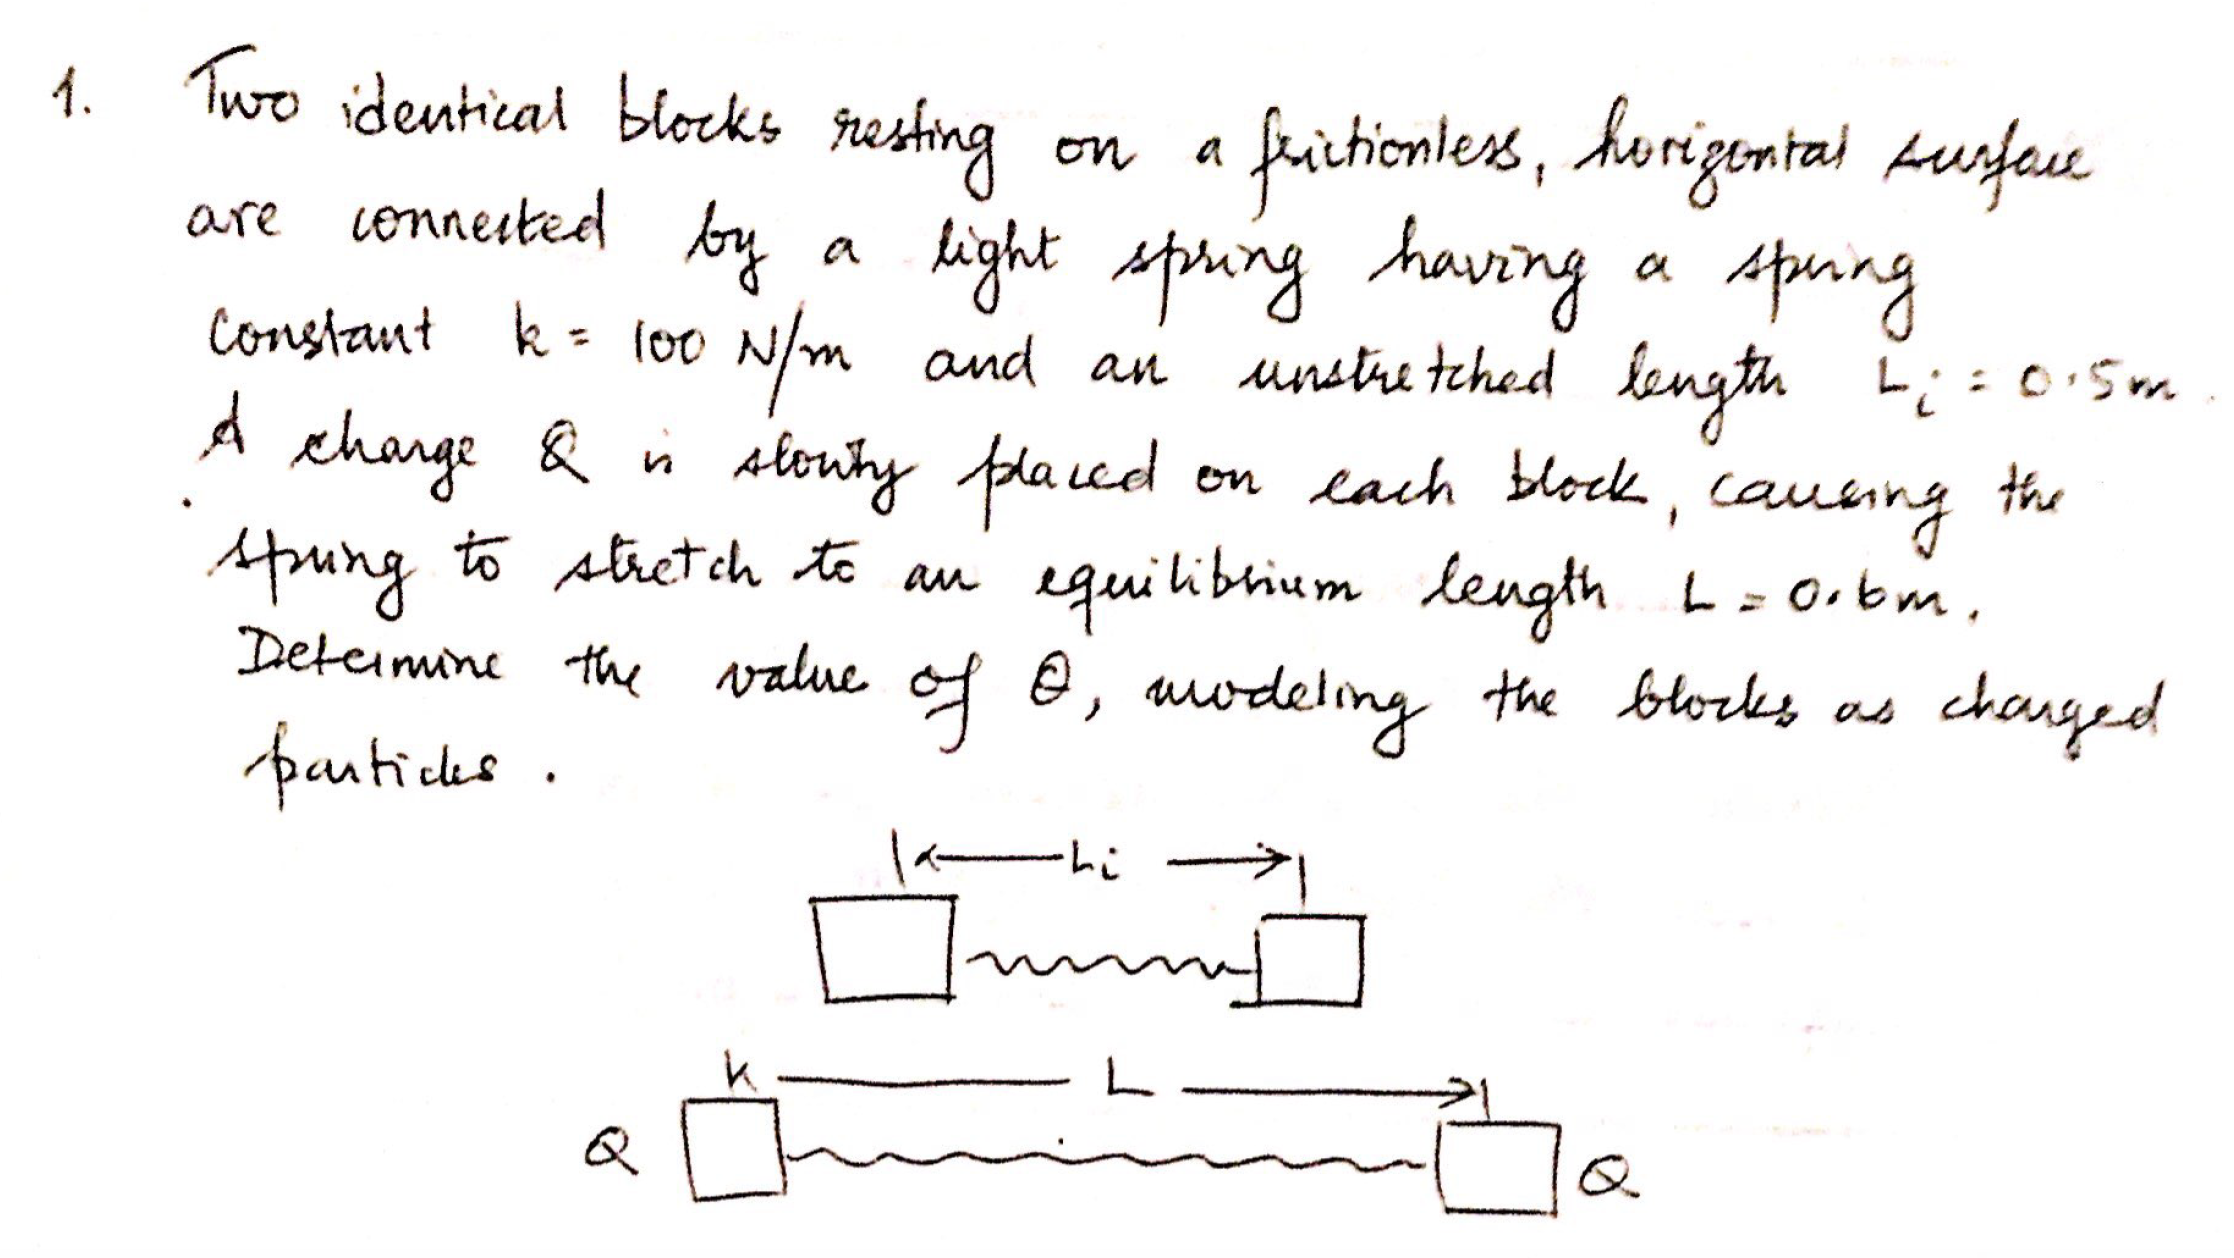 1. Two identical blocks resting on a frictionless, horizontal surface
are connected by a light spring having a spring
constant k = 100 N/m and an unstretched length Li = 0.5m.
A charge Q is slowly placed on each block, causing the
spring to stretch to an equilibrium length L = 0.6m.
Determine the value of Q, modeling the blocks as charged
particles.
Li
L
Q Q